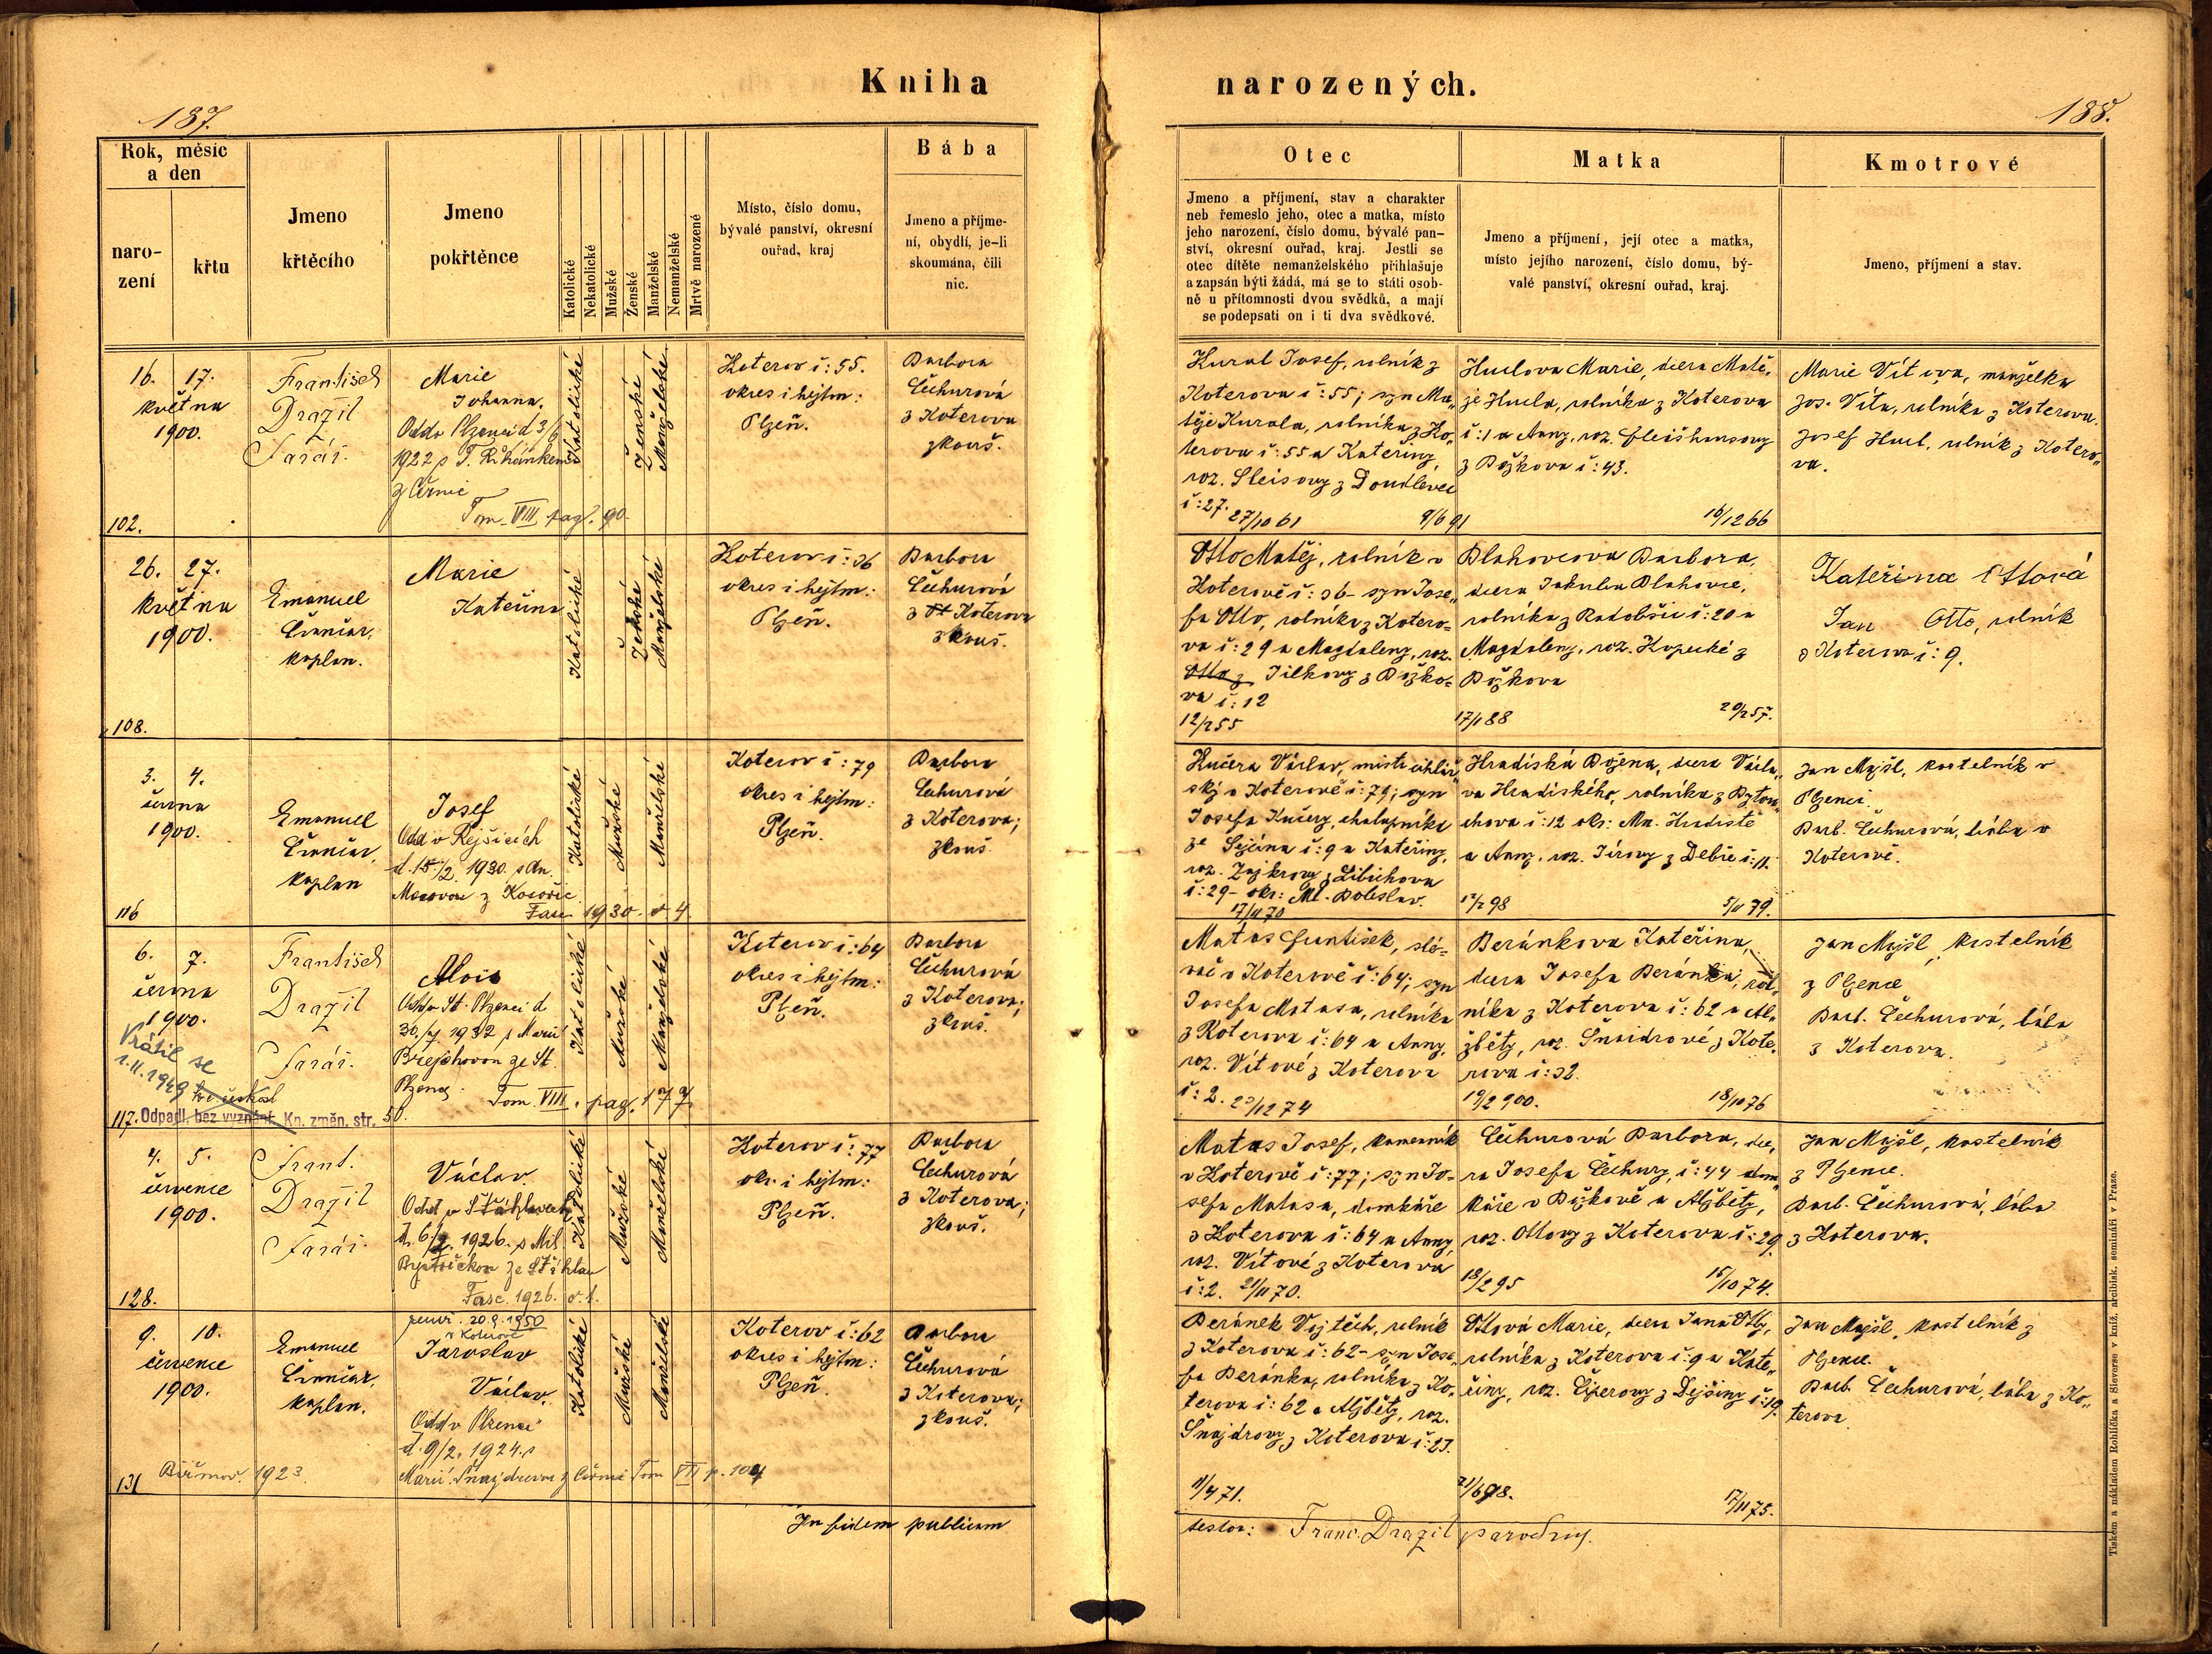 Kniha
narozených.
187.
188.
Rok, měsíc
a den
naro-
zení
křtu
Jmeno
křtěcího
Jmeno
pokřtěnce
Katolické
Nekatolické
Mužské
Ženské
Manželské
Nemanželské
Mrtvě narozené
Místo, číslo domu,
bývalé panství, okresní
ouřad, kraj
Bába
Jmeno a příjme-
ní, obydlí, je-li
skoumána, čili
nic.
Otec
Jmeno a příjmení, stav a charakter
neb řemeslo jeho, otec a matka, místo
jeho narození, číslo domu, bývalé pan-
ství, okresní ouřad, kraj. Jestli se
otec dítěte nemanželského přihlašuje
a zapsán býti žádá, má se to státi osob-
ně u přítomnosti dvou svědků, a mají
se podepsati on i ti dva svědkové.
Matka
Jmeno a příjmení, její otec a matka,
místo jejího narození, číslo domu, bý-
valé panství, okresní ouřad, kraj.
Kmotrové
Jmeno, příjmení a stav.
16. 17.
května
1900.
102.
František
Dražil
Farář.
Marie
Johanna.
Odd v Plzenci d. 3/6
1922 s
z Černic
Tom. VIII pag. 90
Katolické
Ženské
Manželské
Koterov č: 55.
okres i hejtm:
Plzeň.
Barbora
Čechurová
z Koterova
zkouš.
Kural Josef, rolník z
Koterova č: 55; syn Ma„
těje Kurala, rolníka z Ko„
terova č: 55 a Kateřiny,
roz. Sleisovy z Doudlevec
č: 27.
27/10 61
9/6 91
Huclova Marie, dcera Matě„
je Hucla, rolníka z Koterova
č: 1 a Anny, roz. Fleišhansovy
z Božkova č: 43.
16/12 66
Marie Vítova, manželka
Jos. Víta, rolníka z Koterova.
Josef Hucl, rolník z Kotero„
va.
26. 27.
května
1900.
108.
Emanuel
kaplan.
Marie
Kateřina
Katolické
Ženské
Manželské
Koterov č: 36
okres i hejtm.:
Plzeň.
Barbora
Čechurová
z Koterova
zkouš.
Otto Matěj, rolník v
Koterově č: 36 - syn Jose„
fa Otto, rolníka z Kotero=
va č: 29 a Magdaleny, roz.
Jílkovy z Božko=
va č: 12
12/2 55
17/1 88
Blahovcova Barbora,
dcera Jakuba Blahovce,
rolníka z Radobčic č: 20 a
Magdaleny, roz. Kopecké z
Božkova
20/2 57.
Kateřina Ottová
Jan Otto, rolník
z Koterova č: 9.
3. 4.
června
1900.
116
Emanuel
kaplan
Josef
Odd v Rejšicích
d. 15/2. 1930. s An.
z Kosořic
Fasc. 1930. č 4.
Katolické
Mužské
Manželské
Koterov č: 79
okres i hejtm:
Plzeň.
Barbora
Čechurová
z Koterova;
zkouš.
Kučera Václav, mistr cihlář„
ský v Koterově č: 79; syn
Josefa Kučery, chalupníka
ze Sejcína č: 9 a Kateřiny,
roz. Zajkrovy z Libichova
č: 29 - okr: Ml. Boleslav.
17/11 70
12/2 98
Hradiská Božena, dcera Václa„
va Hradiského, rolníka z Ptyrov„
chova č: 12 okr: Mn. Hradiště
a Anny, roz. Jírovy z Debře č: 11.
5/11 79.
Jan Majšl, kostelník v
Plzenci.
Barb. Čechurová, bába v
Koterově.
6. 7.
června
1900.
Vrátil se
1.11.1949
117. Odpadl, bez vyznání. Kn. změn. str. 50.
František
Dražil
Farář.
Alois
Odd v St. Plzenci d.
30./7 1932 s Marií
Brejchovou ze St.
Plzence.
Tom. VIII. pag. 177.
Katolické
Mužské
Manželské
Koterov č: 64
okres i hejtm:
Plzeň.
Barbora
Čechurová
z Koterova;
zkouš.
Matas František, slé„
vač v Koterově č: 64; syn
Josefa Matasa, rolníka
z Koterova č: 64 a Anny,
roz. Vítové z Koterova
č: 2. 23/12 74
19/2 900.
Beránkova Kateřina,
dcera Josefa Beránka, rol„
níka z Koterova č: 62 a Al„
žběty, roz. Šnaidrové z Kote„
rova č: 32.
18/10 76
Jan Majšl, kostelník
z Plzence
Barb. Čechurová, bába
z Koterova.
4. 5.
července
1900.
128.
Frant.
Dražil
Farář.
Václav.
Odd v Šťáhlavech
d. 6/2. 1926. s Mil
Bystřičkou ze Šťáhlav
Fasc. 1926. č. 1.
Katolické
Mužské
Manželské
Koterov č: 77
okr. i hejtm:
Plzeň.
Barbora
Čechurová
z Koterova;
zkouš.
Matas Josef, kameník
v Koterově č: 77; syn Jo-
sefa Matasa, domkáře
z Koterova č: 64 a Anny,
roz. Vítové z Koterova
č: 2. 21/11 70.
18/2 95
Čechurová Barbora, dce„
ra Josefa Čechury, č: 44 dom„
káře v Božkově a Alžběty,
roz. Ottovy z Koterova č: 29.
15/10 74.
Jan Majšl, kostelník
z Plzence.
Barb. Čechurová, bába
z Koterova.
9. 10.
července
1900.
131 Biřmov. 1923.
Emanuel
kaplan.
zemř. 20.9.1950
v Koterově
Jaroslav
Václav.
Odd v Plzenci
d. 9/2. 1924. s
Marií Šnajdrovou z Černic Tom VIII p. 104
Katolické
Mužské
Manželské
Koterov č: 62
okres i hejtm:
Plzeň.
Barbora
Čechurová
z Koterova;
zkouš.
Beránek Vojtěch, rolník
z Koterova č: 62 - syn Jose„
fa Beránka, rolníka z Ko„
terova č: 62 a Alžběty, roz.
Šnajdrovy z Koterova č: 23.
11/4 71.
21/6 98.
Ottová Marie, dcera Jana Otty,
rolníka z Koterova č: 9 a Kate„
řiny, roz. Ciperovy z Dejšiny č: 19.
17/11 75.
Jan Majšl, kostelník z
Plzence.
Barb. Čechurová, bába z Ko„
terova.
In fidem publicam
testor: Franc. Dražil parochus.
Tiskem a nákladem Rohlíčka a Sieverse v kníž. arcibisk. semináři v Praze.